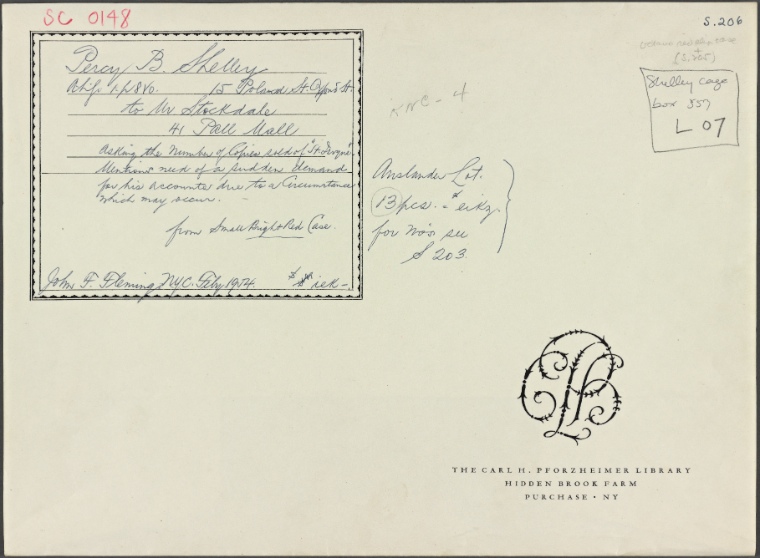 SC 0148
S.206
(S.205)
Shelley case
box 857
L 07
Percy B. Shelley
15 Poland St. Oxford St.
to Mr Stockdale
41 Pall Mall
Asking the Number of Copies sold of "St Irvyne"
Mentions need of a sudden demand
for his accounts due to a Circumstance
which may occur. -
from Small Bright Red Case.
John F. Fleming NYC. Feby 1954.
KNC - 4
Anslander Lot.
13 pcs. -
for No's. see
S 203
THE CARL H. PFORZHEIMER LIBRARY
HIDDEN BROOK FARM
PURCHASE · NY